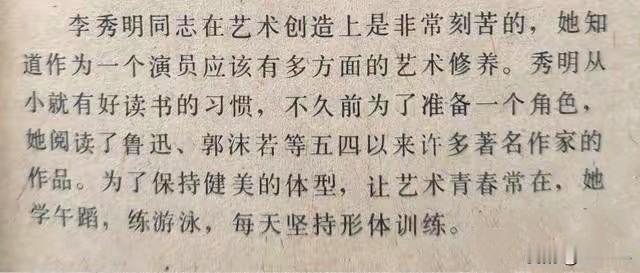 李秀明同志在艺术创造上是非常刻苦的，她知
道作为一个演员应该有多方面的艺术修养。秀明从
小就有好读书的习惯，不久前为了准备一个角色，
她阅读了鲁迅、郭沫若等五四以来许多著名作家的
作品。为了保持健美的体型，让艺术青春常在，她
学午蹈，练游泳，每天坚持形体训练。